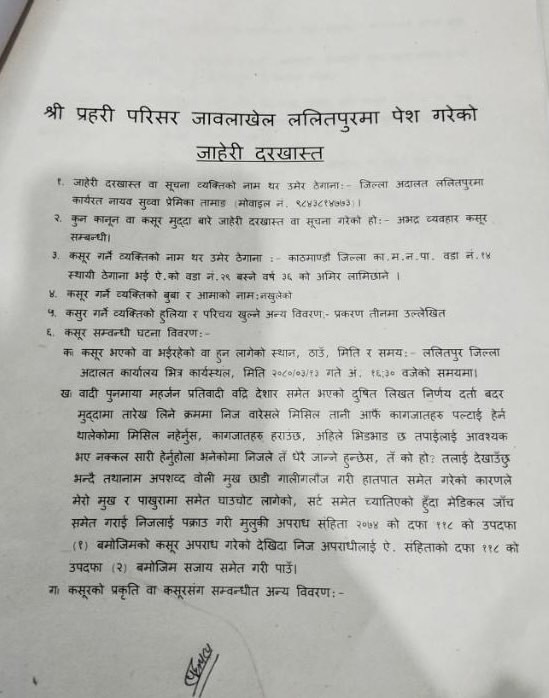 श्री प्रहरी परिसर जावलाखेल ललितपुरमा पेश गरेको
जाहेरी दरखास्त
१. जाहेरी दरखास्त वा सूचना व्यक्तिको नाम थर उमेर ठेगाना:- जिल्ला अदालत ललितपुरमा
कार्यरत नायव सुव्वा प्रेमिका तामाङ (मोवाइल नं. ९८४३८१४७७३)।
२. कुन कानून वा कसूर मुद्दा बारे जाहेरी दरखास्त वा सूचना गरेको हो:- अभद्र व्यवहार कसूर
सम्बन्धी।
३. कसूर गर्ने व्यक्तिको नाम थर उमेर ठेगाना :- काठमाण्डौ जिल्ला का.म.न.पा. वडा नं.१४
स्थायी ठेगाना भई ऐ.को वडा नं.२९ बस्ने वर्ष ३६ को अमिर लामिछाने ।
४. कसूर गर्ने व्यक्तिको बुबा र आमाको नाम:नखुलेको
५. कसुर गर्ने व्यक्तिको हुलिया र परिचय खुल्ने अन्य विवरण:- प्रकरण तीनमा उल्लेखित
६. कसूर सम्वन्धी घटना विवरण:-
क) कसूर भएको वा भईरहेको वा हुन लागेको स्थान, ठाउँ, मिति र समय:- ललितपुर जिल्ला
अदालत कार्यालय भित्र कार्यस्थल, मिति २०८०/०३/१३ गते अं. १६;३० वजेको समयमा।
ख) वादी पुनमाया महर्जन प्रतिवादी वद्रि देशार समेत भएको दुषित लिखत निर्णय दर्ता बदर
मुद्दामा तारेख लिने क्रममा निज वारेसले मिसिल तानी आफै कागजातहरु पल्टाई हेर्न
थालेकोमा मिसिल नहेर्नुस, कागजातहरु हराउंछ, अहिले भिडभाड छ तपाईलाई आवश्यक
भए नक्कल सारी हेर्नुहोला भनेकोमा निजले तँ धेरै जान्ने हुन्छेस, तँ को हो? तलाई देखाउँछु
भन्दै तथानाम अपशव्द वोली मुख छाडी गालीगलौज गरी हातपात समेत गरेको कारणले
मेरो मुख र पाखुरामा समेत घाउचोट लागेको, सर्ट समेत च्यातिएको हुँदा मेडिकल जाँच
समेत गराई निजलाई पक्राउ गरी मुलुकी अपराध संहिता २०७४ को दफा ११८ को उपदफा
(१) बमोजिमको कसूर अपराध गरेको देखिदा निज अपराधीलाई ऐ. संहिताको दफा ११८ को
उपदफा (२) बमोजिम सजाय समेत गरी पाउँ।
ग) कसूरको प्रकृति वा कसूरसंग सम्वन्धीत अन्य विवरण:-